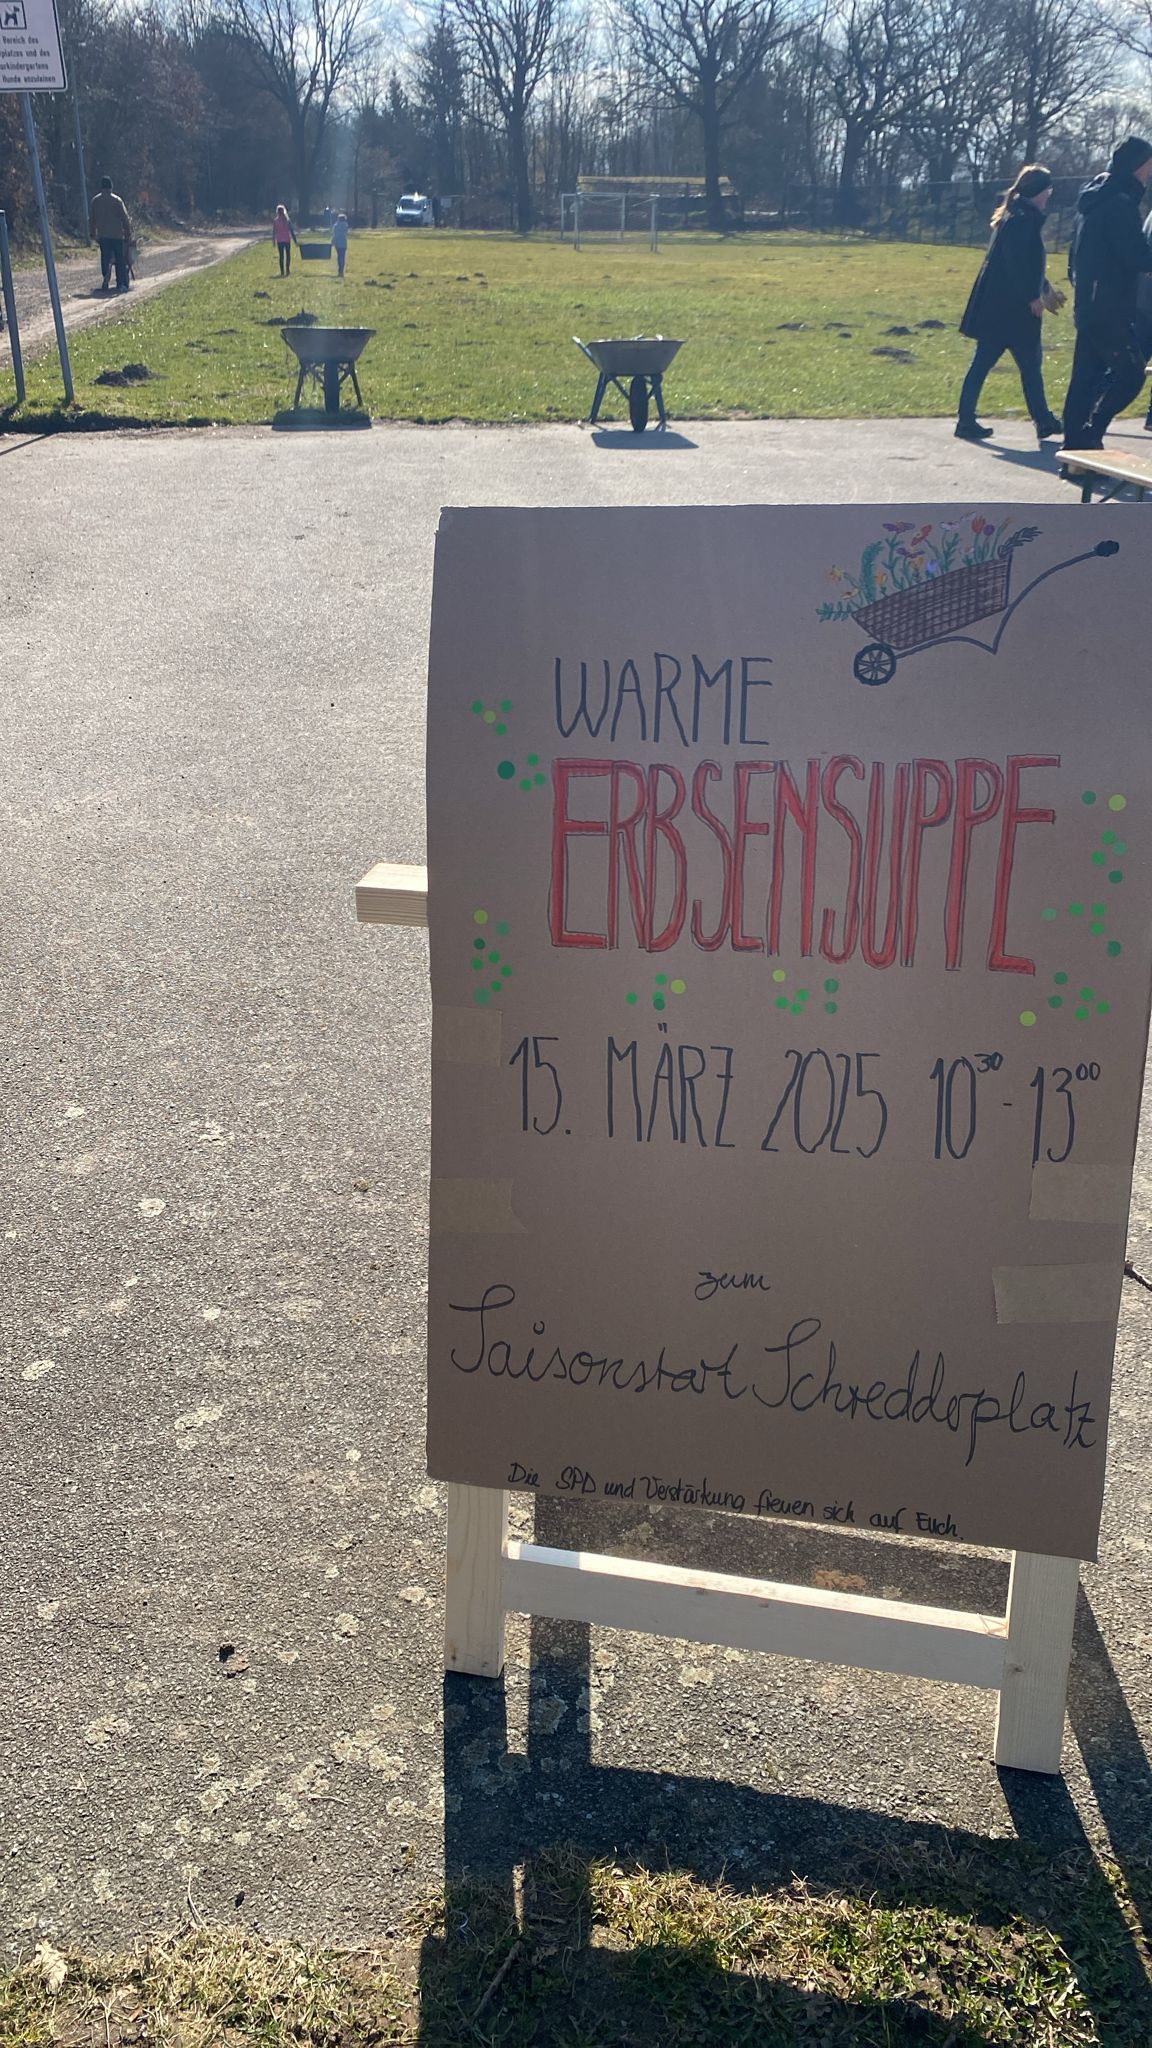 Bereich des
platzes und des
urkindergartens
Hunde anzuleinen
WARME
ERBSENSUPPE
15. MÄRZ 2025 10³⁰ - 13⁰⁰
zum
Saisonstart Schredderplatz
Die SPD und Verstärkung freuen sich auf Euch.